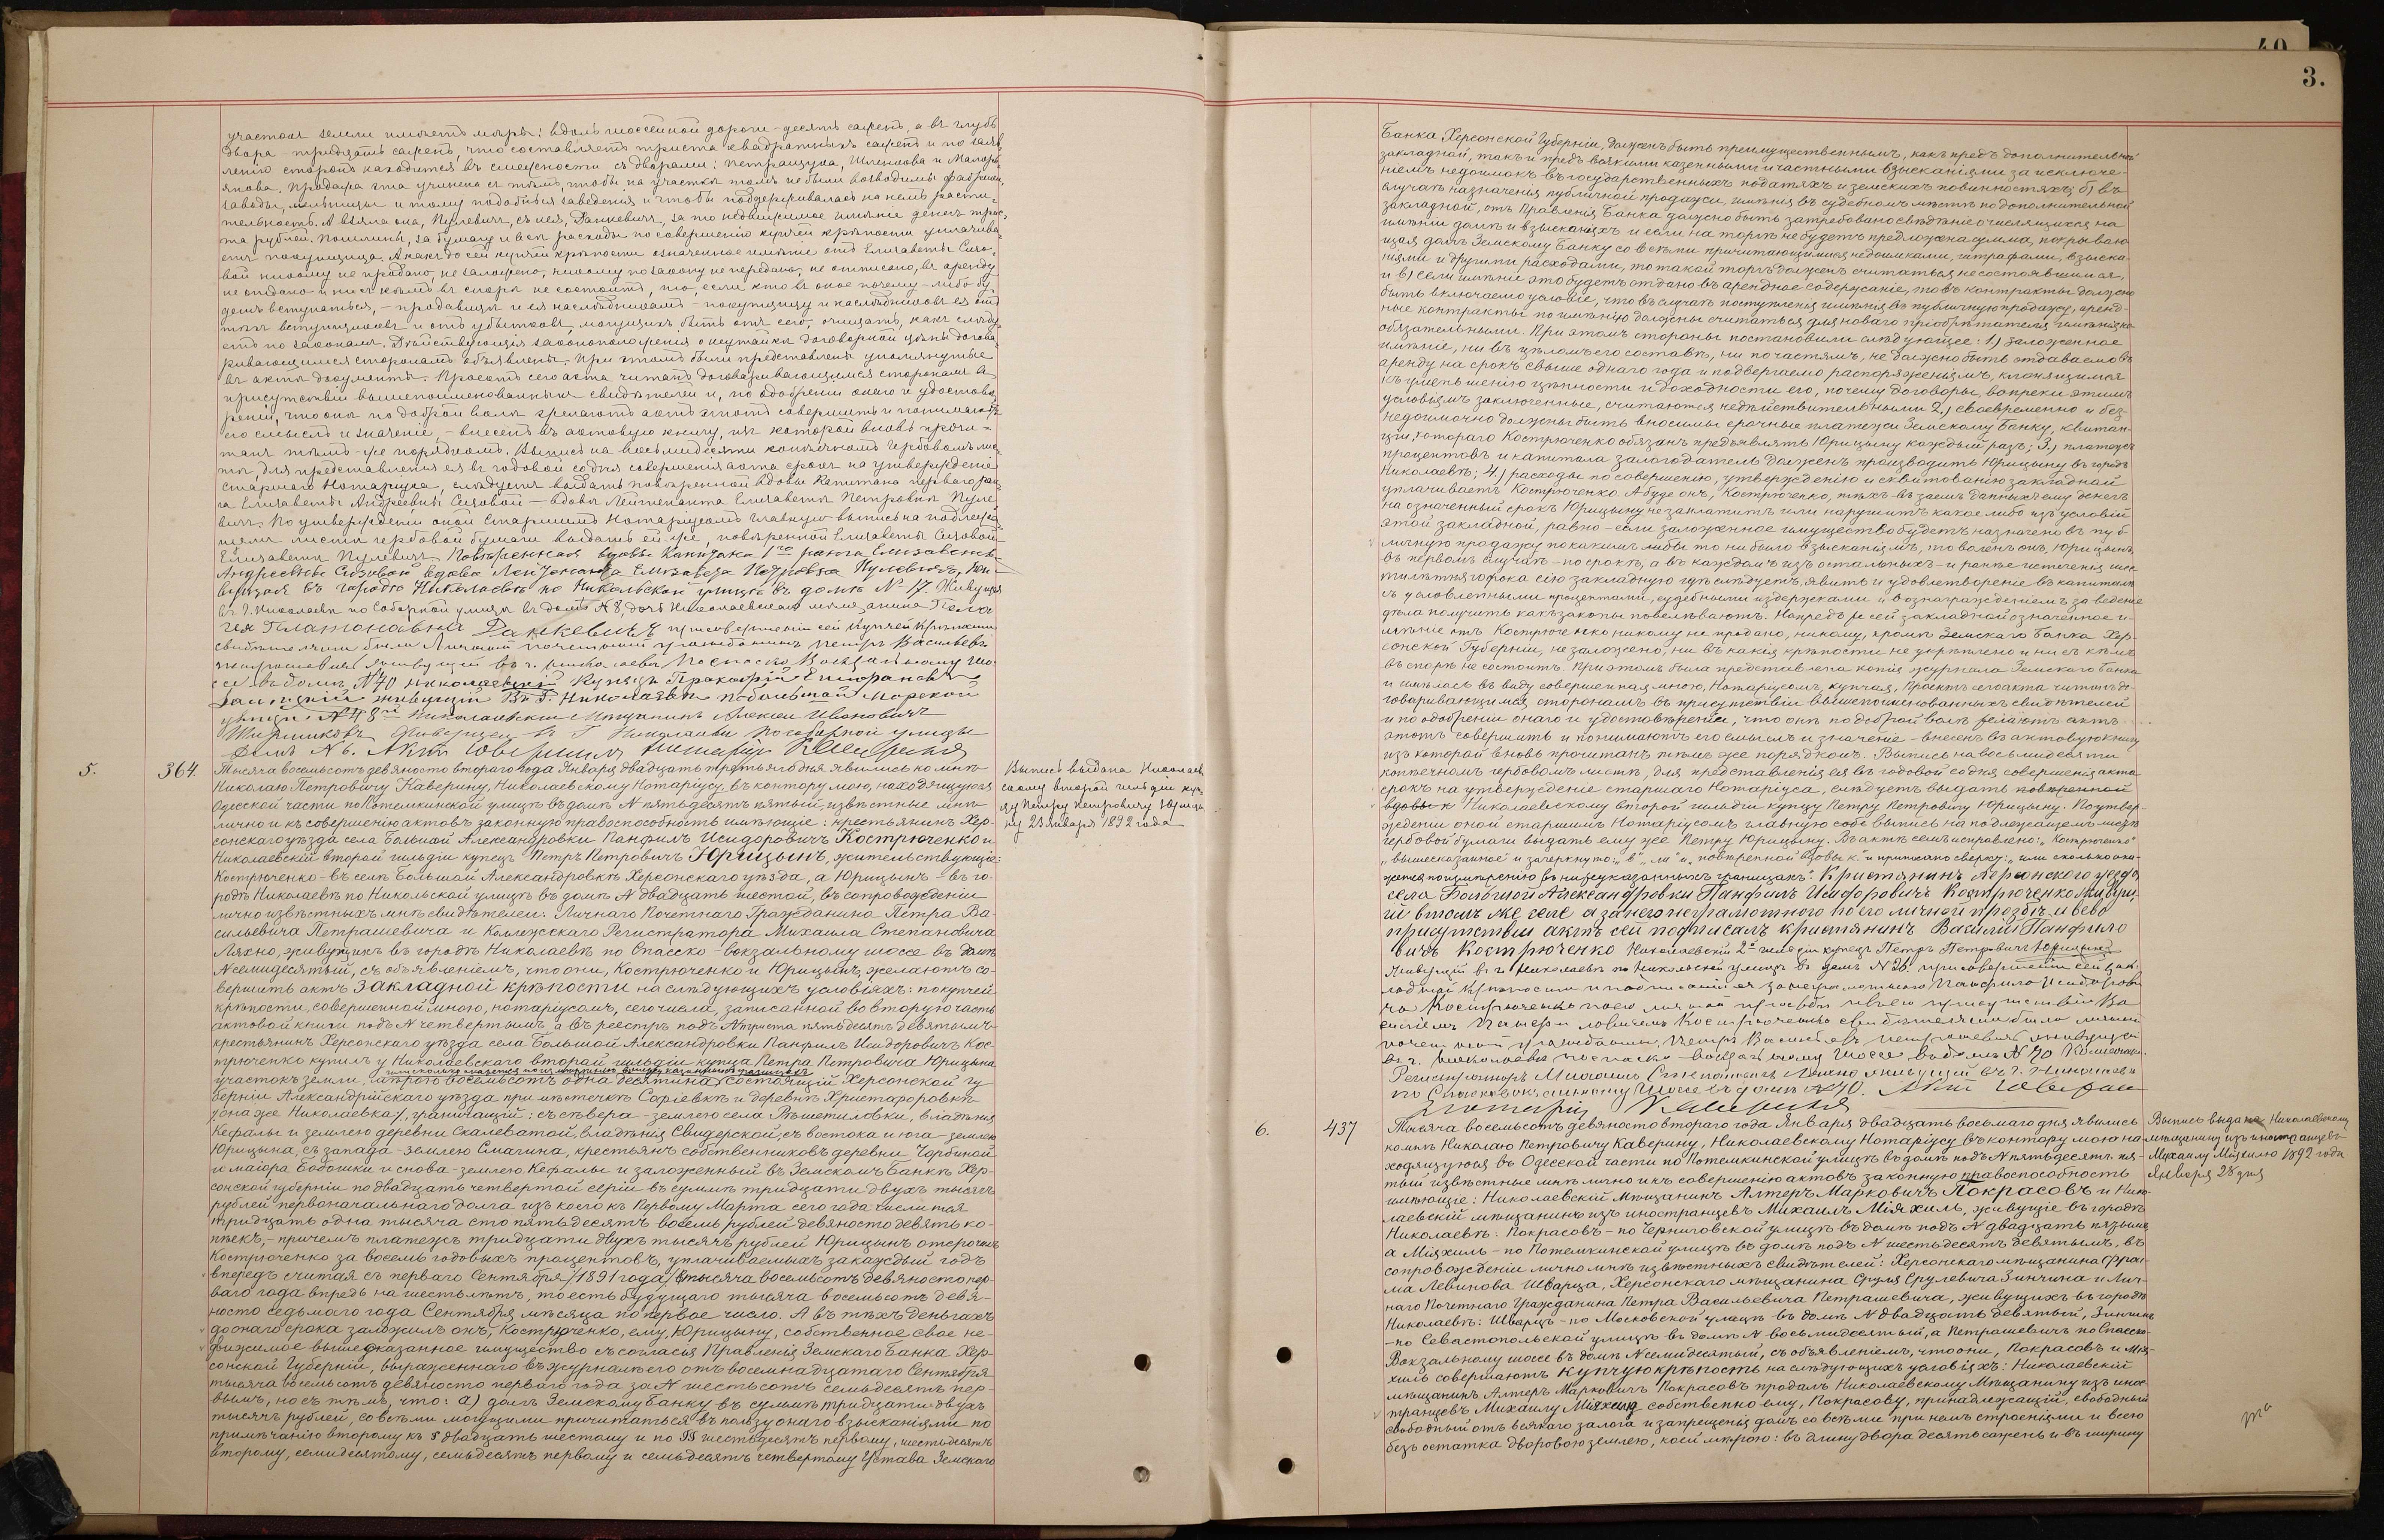 участокъ земли имѣетъ мѣры: вдоль шоссейной дороги - десять сажень, а въ глубь
двора - тридцать сажень, что составляетъ триста квадратныхъ сажень и по заяв-
ленію сторонъ находится въ смежности съ дворами: Петращука, и Маляре-
Продажа эта учинена съ тѣмъ, чтобы на участкѣ томъ не были возводимы фабрики,
заводы, мельницы и тому подобныя заведенія и чтобы поддерживалась на немъ расти-
тельность. А взяла она, Пулевичъ, съ нея, Данкевичъ, за то недвижимое имѣніе денегъ трис-
та рублей. Пошлины, за бумагу и всѣ расходы по совершенію купчей крѣпости уплачива-
етъ покупщица. А какъ до сей купчей крѣпости означенное имѣніе отъ Елизаветы Сизо-
вой никому не продано, не заложено, никому по закону не передано, не отписано, въ аренду
не отдано и ни съ кѣмъ въ спорѣ не состоитъ, то, если кто въ оное почему-либо бу-
детъ вступаться, - продавцы и ея наслѣдникамъ - покупщицу и наслѣдниковъ ея отъ
тѣхъ вступщиковъ и отъ убытковъ, могущихъ быть отъ сего, очищать, какъ слѣду-
етъ по законамъ. Дѣйствующія законоположенія о неутайкѣ договорной цѣны догова-
ривающимся сторонамъ объявлены. При этомъ были представлены упомянутые
въ актѣ документы. Проектъ сего акта читанъ договаривающимся сторонамъ въ
присутствіи вышепоименованныхъ свидѣтелей и, по одобреніи онаго и удостовѣ-
реніи, что онѣ по доброй волѣ желаютъ актъ этотъ совершить и понимаютъ
его смыслъ и значеніе, - внесенъ въ актовую книгу, изъ которой вновь прочи-
танъ тѣмъ-же порядкомъ. Выпись на восьмидесяти копѣечномъ гербовомъ лис-
тѣ, для представленія ея въ годовой со дня совершенія акта срокъ на утвержденіе
старшаго Нотаріуса, слѣдуетъ выдать повѣренной вдовы Капитана перваго ран-
га Елизаветы Андреевны Сизовой - вдовѣ Лейтенанта Елизаветѣ Петровнѣ Пуле-
вичъ. По утвержденіи оной Старшимъ Нотаріусомъ главную выпись на подлежа-
щемъ листѣ гербовой бумаги выдать ей же, повѣренной Елизаветы Сизовой -
Елизаветѣ Пулевичъ. Повѣренная вдовы Капитана 1го ранга Елизаветы
Андреевны Сизовой вдова Лейтенанта Елизавета Петровна Пулевичъ,
въ городѣ Николаевѣ по Никольской улицѣ въ домѣ № 17. Живущая
въ г. Николаевѣ по Соборной улицѣ въ домѣ № 8, дочь Николаевскаго мѣщанина Пела-
гея Платоновна Данкевичъ при совершеніи сей купчей крѣпости
свидѣтелями были Личный почетный гражданинъ Петръ Васильевъ
Петрашевичъ живущій въ г. Николаевѣ по Спасско Вокзальному шос-
се въ домѣ № 70 Николаевскій Купецъ Прокофій
живущій въ г. Николаевѣ по большой Морской
улицѣ № 48 Николаевскій Мѣщанинъ Алексѣй Ивановичъ
живущій въ г Николаевѣ по Соборной улицѣ
домъ № 6. Актъ совершилъ нотаріусъ Каверинъ
5.
364.
Тысяча восемьсотъ девяносто втораго года Января двадцать третьяго дня явились ко мнѣ
Николаю Петровичу Каверину, Николаевскому Нотаріусу, въ контору мою, находящуюся
Одесской части по Потемкинской улицѣ въ домѣ № пятьдесятъ пятый, извѣстные мнѣ
лично и къ совершенію актовъ законную правоспособность имѣющіе: крестьянинъ Хер-
сонскаго уѣзда села Большой Александровки Панфилъ Исидоровичъ Кострюченко и
Николаевскій второй гильдіи купецъ Петръ Петровичъ Юрицынъ, жительствующіе:
Кострюченко - въ селѣ Большой Александровкѣ Херсонскаго уѣзда, а Юрицынъ - въ го-
родѣ Николаевѣ по Никольской улицѣ въ домѣ № двадцать шестой, въ сопровожденіи
лично извѣстныхъ мнѣ свидѣтелей: Личнаго Почетнаго Гражданина Петра Ва-
сильевича Петрашевича и Коллежскаго Регистратора Михаила Степановича
Ляхно, живущихъ въ городѣ Николаевѣ по Спасско-вокзальному шоссе въ домѣ
№ семидесятый, съ объявленіемъ, что они, Кострюченко и Юрицынъ, желаютъ со-
вершить актъ Закладной крѣпости на слѣдующихъ условіяхъ: по купчей
крѣпости, совершенной мною, нотаріусомъ, сего числа, записанной во вторую часть
актовой книги подъ № четвертымъ, а въ реестръ подъ № триста пятьдесятъ девятымъ
крестьянинъ Херсонскаго уѣзда села Большой Александровки Панфилъ Исидоровичъ Кос-
трюченко купилъ у Николаевскаго второй гильдіи купца Петра Петровича Юрицына
или сколько окажется по измѣренію въ нижеуказанныхъ границахъ
участокъ земли, мѣрою восемьсотъ одна десятина, состоящій Херсонской гу-
берніи Александрійскаго уѣзда при мѣстечкѣ Софіевкѣ и деревнѣ Христофоровкѣ
/она же Николаевка/, граничащій: съ сѣвера - землею села Рѣшетиловки, владѣнія
Кефалы и землею деревни Скалеватой, владѣнія Свидерской; съ востока и юга - землею
Юрицына, съ запада - землею Смагина, крестьянъ собственниковъ деревни Чорбиной
и маіора Бобошки и снова - землею Кефалы и заложенный въ Земскомъ Банкѣ Хер-
сонской губерніи по двадцать четвертой серіи въ суммѣ тридцати двухъ тысячъ
рублей первоначальнаго долга изъ коего къ первому Марта сего года числится
тридцать одна тысяча сто пятьдесятъ восемь рублей девяносто девять ко-
пѣекъ, - причемъ платежъ тридцати двухъ тысячъ рублей Юрицынъ отсрочилъ
Кострюченко за восемь годовыхъ процентовъ, уплачиваемыхъ за каждый годъ
впередъ считая съ перваго Сентября /1891 года/ тысяча восемьсотъ девяносто пер-
ваго года впредь на шесть лѣтъ, то есть будущаго тысяча восемьсотъ девя-
носто седьмаго года Сентября мѣсяца по первое число. А въ тѣхъ деньгахъ
до онаго срока заложилъ онъ, Кострюченко, ему, Юрицыну, собственное свое не-
движимое вышесказанное имущество съ согласія Правленія Земскаго Банка Хер-
сонской Губерніи, выраженнаго въ журналѣ его отъ восемнадцатаго Сентября
тысяча восемьсотъ девяносто перваго года за № шестьсотъ семьдесятъ пер-
вымъ, но съ тѣмъ, что: а) долгъ Земскому Банку въ суммѣ тридцати двухъ
тысячъ рублей, со всѣми могущими причитаться въ пользу онаго взысканіями по
примѣчанію второму къ § двадцать шестому и по §§ шестьдесятъ первому, шестьдесятъ
второму, семидесятому, семьдесятъ первому и семьдесятъ четвертому Устава Земскаго
Выпись выдана Николаев-
скому второй гильдіи куп-
цу Петру Петровичу Юрицы-
ну 23 января 1892 года
40
3.
Банка Херсонской Губерніи, долженъ быть преимущественнымъ, какъ предъ дополнительной
закладной, такъ и предъ всякими казенными и частными взысканіями за исключе-
ніемъ недоимокъ въ государственныхъ податяхъ и земскихъ повинностяхъ; б) въ
случаѣ назначенія публичной продажи, имѣнія въ судебномъ мѣстѣ по дополнительной
закладной, отъ Правленія Банка должно быть затребовано свѣдѣніе о числящихся на
имѣніи долгѣ и взысканіяхъ и если на торгѣ не будетъ предложена сумма, покрываю-
щая долгъ Земскому Банку со всѣми причитающимися недоимками, штрафами, взыска-
ніями и другими расходами, то такой торгъ долженъ считаться несостоявшимся,
и в) если имѣніе это будетъ отдано въ арендное содержаніе, то въ контракты должно
быть включаемо условіе, что въ случаѣ поступленія имѣнія въ публичную продажу, аренд-
ные контракты по имѣнію должны считаться для новаго пріобрѣтателя имѣнія не
обязательными. При этомъ стороны постановили слѣдующее: 1) заложенное
имѣніе, ни въ цѣломъ его составѣ, ни по частямъ, не должно быть отдаваемо въ
аренду на срокъ свыше однаго года и подвергаемо распоряженіямъ, клонящимся
къ уменьшенію цѣнности и доходности его, почему договоры, вопреки этимъ
условіямъ заключенные, считаются недѣйствительными 2.) своевременно и без-
недоимочно должны быть вносимы срочные платежи Земскому Банку, квитан-
ціи котораго Кострюченко обязанъ предъявлять Юрицыну каждый разъ; 3.) платежъ
процентовъ и капитала залогодатель долженъ производить Юрицыну въ городѣ
Николаевѣ; 4.) расходы по совершенію, утвержденію и сквитованію закладной
уплачиваетъ Кострюченко. А буде онъ, Кострюченко, тѣхъ въ заемъ данныхъ ему денегъ
на означенный срокъ Юрицыну не заплатитъ или нарушитъ какое либо изъ условій
этой закладной, равно - если заложенное имущество будетъ назначено въ пуб-
личную продажу по какимъ либы то ни было взысканіямъ, то воленъ онъ, Юрицынъ,
въ первомъ случаѣ - по срокѣ, а въ каждомъ изъ остальныхъ - и ранѣе истеченія шес-
тилѣтняго срока сію закладную гдѣ слѣдуетъ, явить и удовлетвореніе въ капиталѣ
съ условленными процентами, судебными издержками и вознагражденіемъ за веденіе
дѣла получить какъ законы повелѣваютъ. Напредъ же сей закладной означенное и-
мѣніе отъ Кострюченко никому не продано, никому, кромѣ Земскаго Банка Хер-
сонской Губерніи, не заложено, ни въ какія крѣпости не укрѣплено и ни съ кѣмъ
въ спорѣ не состоитъ. При этомъ была представлена копія журнала Земскаго Банка
и имѣлась въ виду совершенная мною, Нотаріусомъ, купчая. Проектъ сего акта читанъ до-
говаривающимся сторонамъ въ присутствіи вышепоименованныхъ свидѣтелей
и по одобреніи онаго и удостовѣреніи, что онѣ по доброй волѣ желаютъ актъ
этотъ совершить и понимаютъ его смыслъ и значеніе - внесенъ въ актовую книгу
изъ которой вновь прочитанъ тѣмъ же порядкомъ. Выпись на восьмидесяти
копѣечномъ гербовомъ листѣ, для представленія ея въ годовой со дня совершенія акта
срокъ на утвержденіе старшаго Нотаріуса, слѣдуетъ выдать повѣренной
вдовы к Николаевскому второй гильдіи купцу Петру Петровичу Юрицыну. По утвер-
жденіи оной старшимъ Нотаріусомъ главную себѣ выпись на подлежащемъ листѣ
гербовой бумаги выдать ему же Петру Юрицыну. Въ актѣ семъ исправлено: „Кострюченко"
„вышесказанное" и зачеркнуто: „в" „м" и „повѣренной вдовы к" и приписано сверху: „или сколько ока-
жется по измѣренію въ нижеуказанныхъ границахъ". Кристянинъ Херсонского уезда
села Большой Александровки Панфилъ Исидоровичъ Кострюченко Живущи-
й втомъ же селе а занего неграмотного по его личной прозбѣ и вево
присутствіи актъ сей подписалъ кристянинъ Василій Панфило
вичъ Кострюченко Николаевскій 2й гильдіи купецъ Петръ Петровичъ Юрицынъ
Живущій въ г. Николаевѣ по Никольской улицѣ въ домѣ № 26. при совершеніи сей зак-
ладной крѣпости и подписаніи ея за неграмотнаго Панфила Исидорови
ча Кострюченко по его личной просьбѣ и въ его присутствіи Ва
силіемъ Панфиловичемъ Кострюченко свидѣтелями были личный
почетный гражданинъ Петръ Васильевъ Петрашевичъ живущій
въ г. Николаевѣ по Спасско-вокзальному шоссе въ домѣ № 70 Коллежскій
Регистраторъ Михаилъ Степановичъ Ляхно живущій въ г. Николаевѣ
по Спасковокзальному Шоссе въ домѣ № 70. Актъ совершилъ
Нотаріусъ Каверинъ
6.
437
Тысяча восемьсотъ девяносто втораго года Января двадцать восьмаго дня явились
ко мнѣ Николаю Петровичу Каверину, Николаевскому Нотаріусу въ контору мою на-
ходящуюся въ Одесской части по Потемкинской улицѣ въ домѣ подъ № пятьдесятъ пя-
тый извѣстные мнѣ лично и къ совершенію актовъ законную правоспособность
имѣющіе: Николаевскій Мѣщанинъ Алтеръ Марковичъ Покрасовъ и Нико-
лаевскій мѣщанинъ изъ иностранцевъ Михаилъ Міяхиль, живущіе въ городѣ
Николаевѣ: Покрасовъ - по Черниговской улицѣ въ домѣ подъ № двадцать пятымъ
а Міяхиль - по Потемкинской улицѣ въ домѣ подъ № шестьдесятъ девятымъ, въ
сопровожденіи лично мнѣ извѣстныхъ свидѣтелей: Херсонскаго мѣщанина Фраи-
ма Левинова Шварца, Херсонскаго мѣщанина Сруля Срулевича Зинчина и Лич-
наго Почетнаго Гражданина Петра Васильевича Петрашевича, живущихъ въ городѣ
Николаевѣ: Шварцъ - по Московской улицѣ въ домѣ № двадцать девятый, Зинчинъ
- по Севастопольской улицѣ въ домѣ № восьмидесятый, а Петрашевичъ по Спасско-
Вокзальному шоссе въ домѣ № семидесятый, съ объявленіемъ, что они, Покрасовъ и Мія-
хиль совершаютъ Купчую крѣпость на слѣдующихъ условіяхъ: Николаевскій
мѣщанинъ Алтеръ Марковичъ Покрасовъ продалъ Николаевскому Мѣщанину изъ инос-
транцевъ Михаилу Міяхилю собственно ему, Покрасову, принадлежащій, свободный
свободный отъ всякаго залога и запрещенія домъ со всѣми при немъ строеніями и всею
безъ остатка дворовою землею, коей мѣрою: въ длину двора десять сажень и въ ширину
Выпись выдана Николаевскому
мѣщанину изъ иностранцевъ
Михаилу Міяхилю 1892 года
Января 28 дня